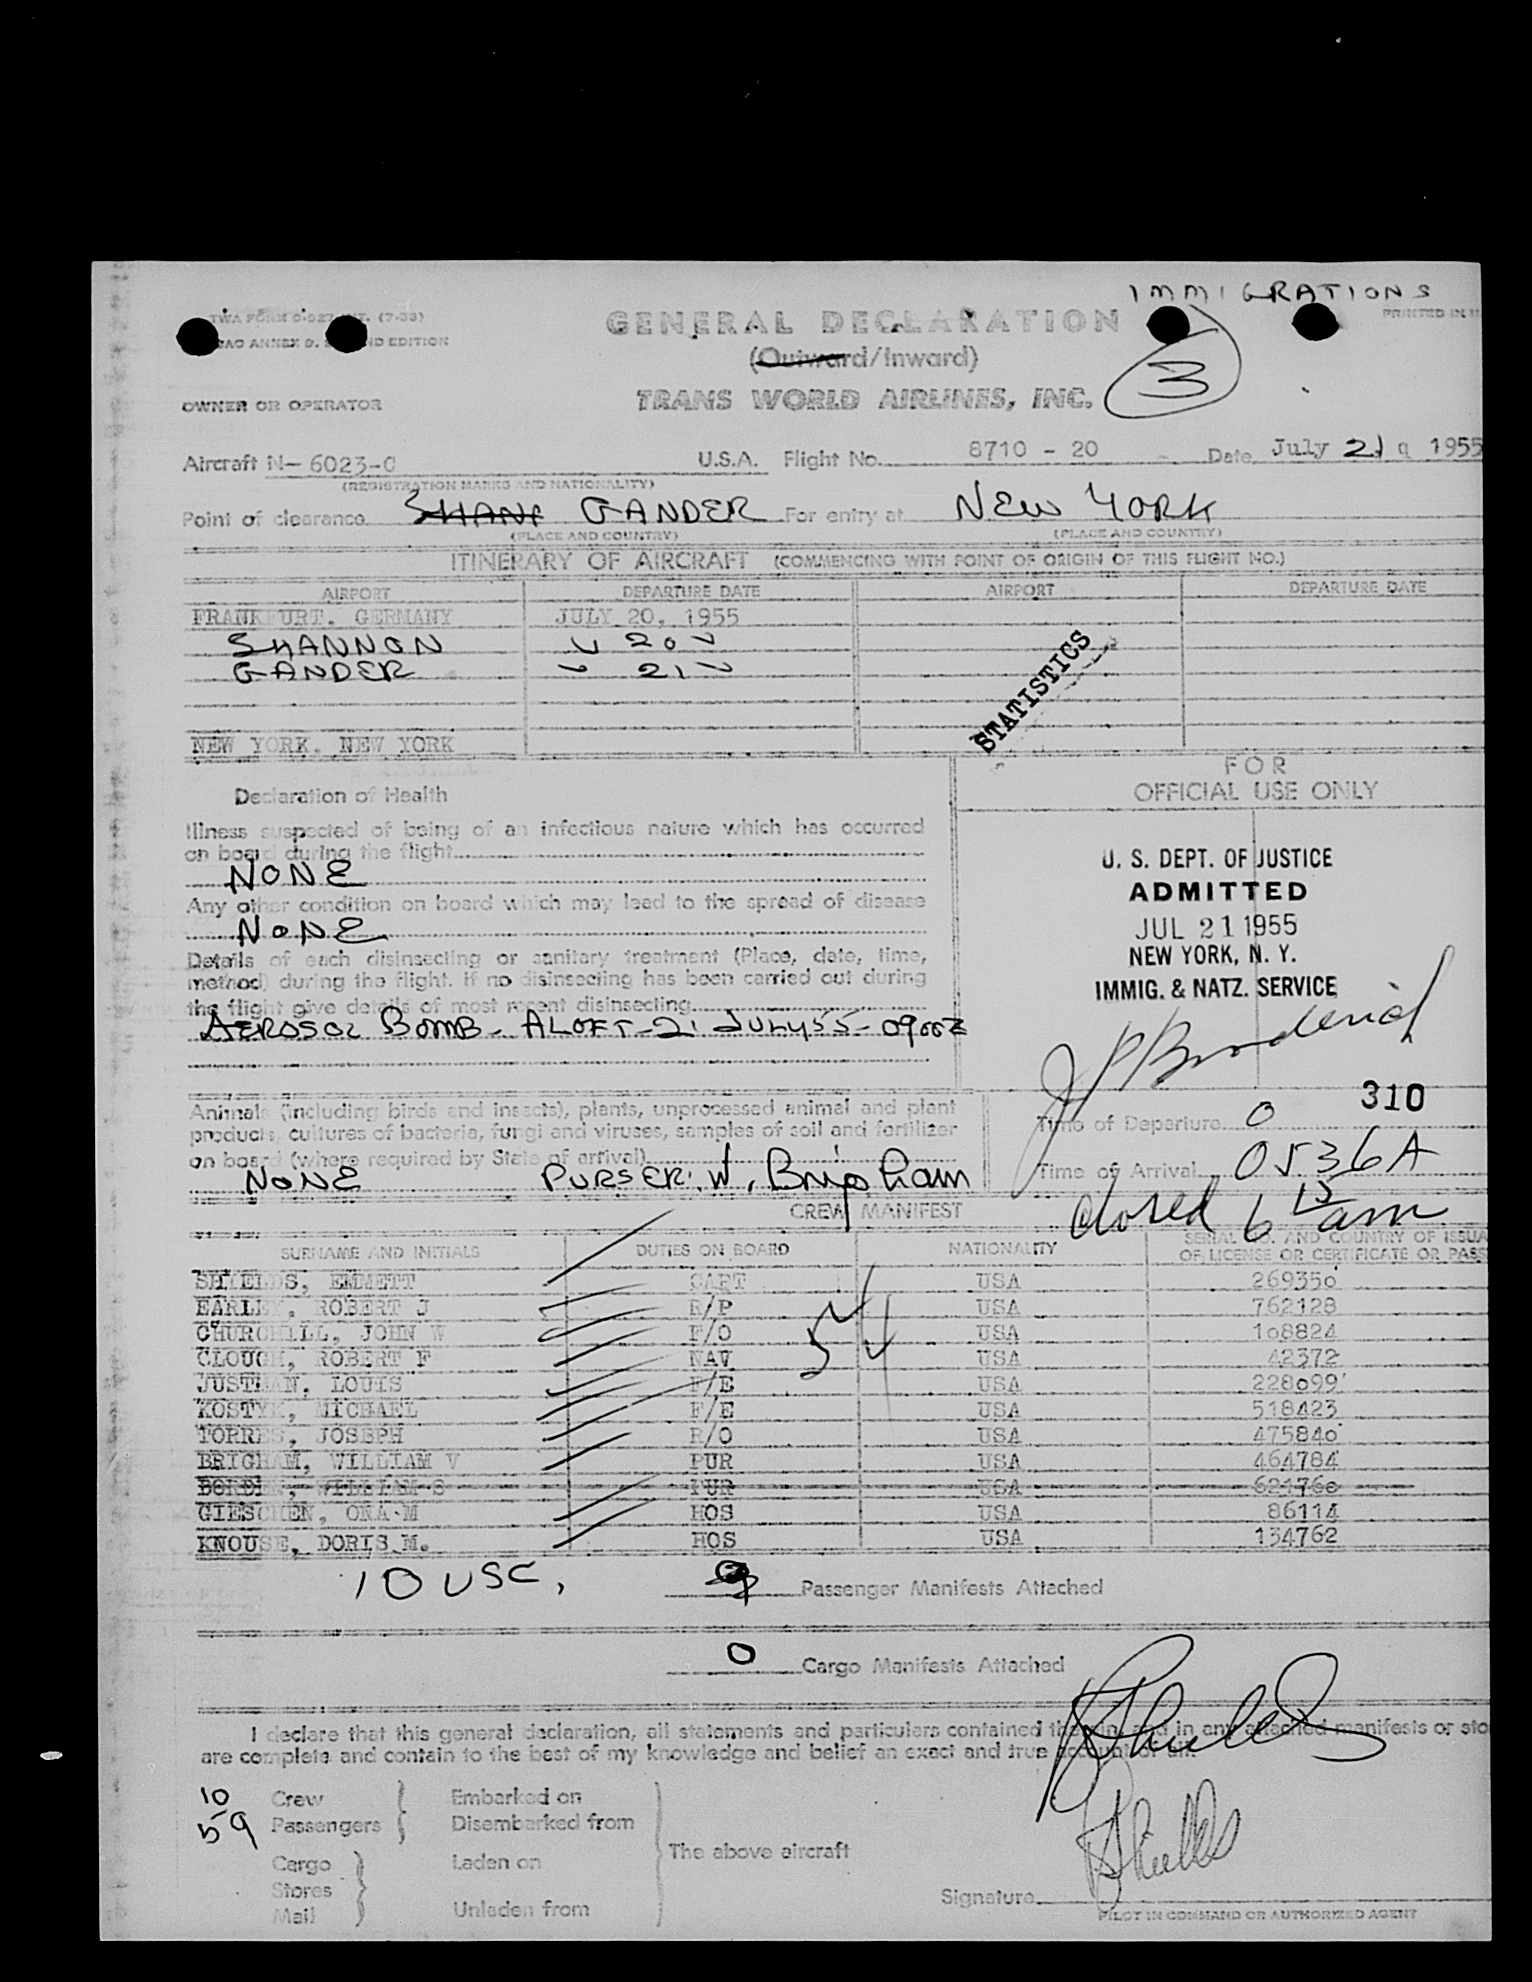 IMMIGRATIONS
TWA FORM INT. (7-53)
GENERAL DECLARATION
PRINTED IN
ICAO ANNEX 9, 2ND EDITION
(Outward/Inward)
3
OWNER OR OPERATOR
TRANS WORLD AIRLINES, INC.
Aircraft N- 6023-C U.S.A. Flight No. 8710 - 20 Date July 21 1955
(REGISTRATION MARKS AND NATIONALITY)
Point of clearance SHAN GANDER For entry at NEW YORK
(PLACE AND COUNTRY) (PLACE AND COUNTRY)
ITINERARY OF AIRCRAFT (COMMENCING WITH POINT OF ORIGIN OF THIS FLIGHT NO.)
AIRPORT DEPARTURE DATE AIRPORT DEPARTURE DATE
FRANKFURT, GERMANY JULY 20, 1955
SHANNON 20
GANDER 21
STATISTICS
NEW YORK, NEW YORK
FOR
OFFICIAL USE ONLY
Declaration of Health
Illness suspected of being of an infectious nature which has occurred
on board during the flight
NONE
Any other condition on board which may lead to the spread of disease
NONE
Details of each disinsecting or sanitary treatment (Place, date, time,
method) during the flight. If no disinsecting has been carried out during
the flight give details of most recent disinsecting
AEROSOL BOMB - ALOFT - 21 JULY 55 - 0900Z
U. S. DEPT. OF JUSTICE
ADMITTED
JUL 21 1955
NEW YORK, N. Y.
IMMIG. & NATZ. SERVICE
310
Animals (including birds and insects), plants, unprocessed animal and plant
products, cultures of bacteria, fungi and viruses, samples of soil and fertilizer
on board (where required by State of arrival)
NONE PURSER: W. Brigham
Time of Departure 0
Time of Arrival 0536A
closed 6 15 am
CREW MANIFEST
SURNAME AND INITIALS DUTIES ON BOARD NATIONALITY SERIAL NO. AND COUNTRY OF ISSUA
OF LICENSE OR CERTIFICATE OR PASS
SHIELDS, EMMETT CAPT USA 269350
EARLEY, ROBERT J R/P USA 762128
CHURCHILL, JOHN W F/O USA 108824
CLOUGH, ROBERT F NAV USA 42372
JUSTMAN, LOUIS F/E USA 228099
KOSTYK, MICHAEL F/E USA 518423
TORRES, JOSEPH R/O USA 475840
BRIGHAM, WILLIAM V PUR USA 464784
BORDEN, WILLIAM S PUR USA 621760
GIESCHEN, ORA M HOS USA 86114
KNOUSE, DORIS M. HOS USA 134762
10 USC,
9 Passenger Manifests Attached
0 Cargo Manifests Attached
I declare that this general declaration, all statements and particulars contained therein, and in any attached manifests or sto
are complete and contain to the best of my knowledge and belief an exact and true account of all.
10 Crew Embarked on
59 Passengers Disembarked from
The above aircraft
Cargo Laden on
Stores
Mail Unladen from
Signature
PILOT IN COMMAND OR AUTHORIZED AGENT